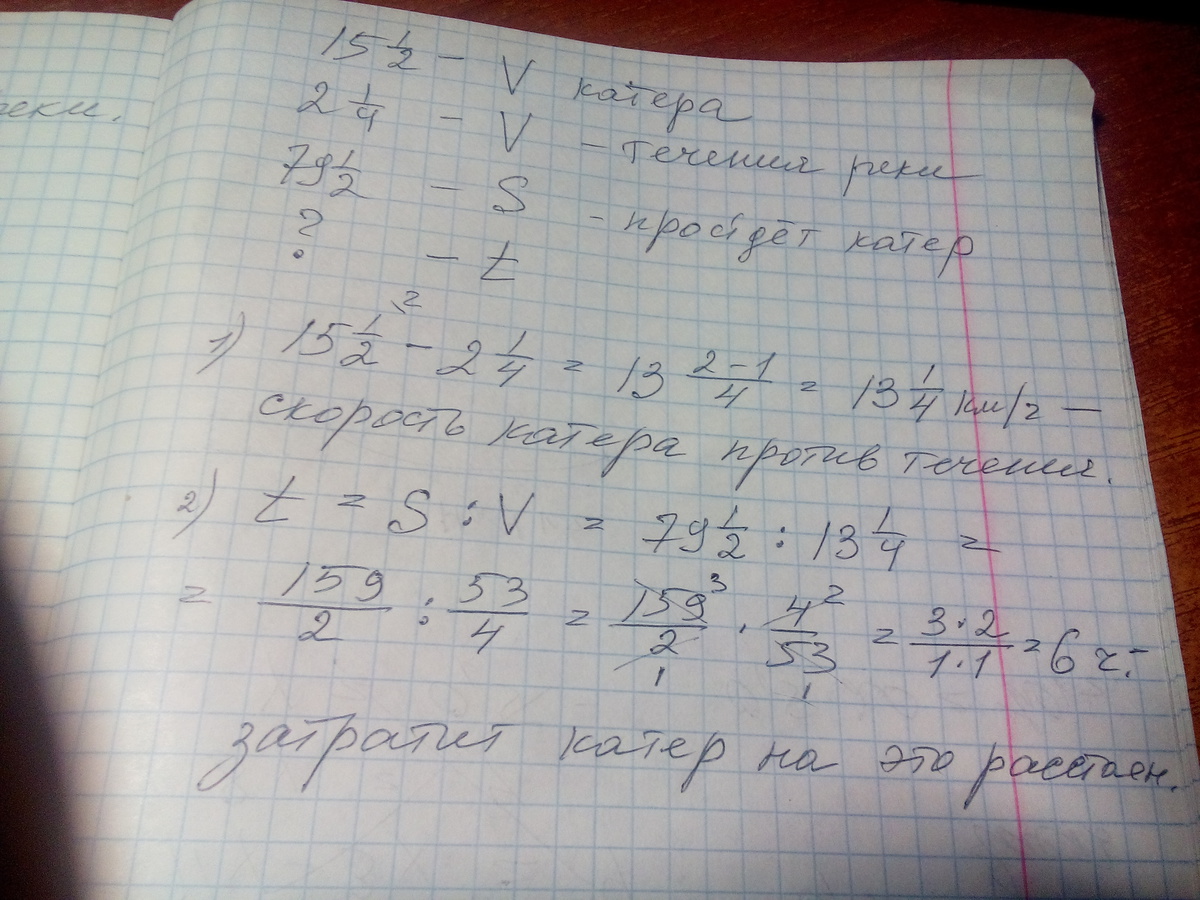 реки.
15 1/2 - V катера
2 1/4 - V - течения реки
79 1/2 - S - пройдёт катер
? - t
1) 15 1/2 \2 - 2 1/4 = 13 2-1/4 = 13 1/4 км/ч —
скорость катера против течения.
2) t = S : V = 79 1/2 : 13 1/4 =
= 159/2 : 53/4 = 159 3/2 1 · 4 2/53 1 = 3·2/1·1 = 6 ч. -
затратит катер на это расстоян.